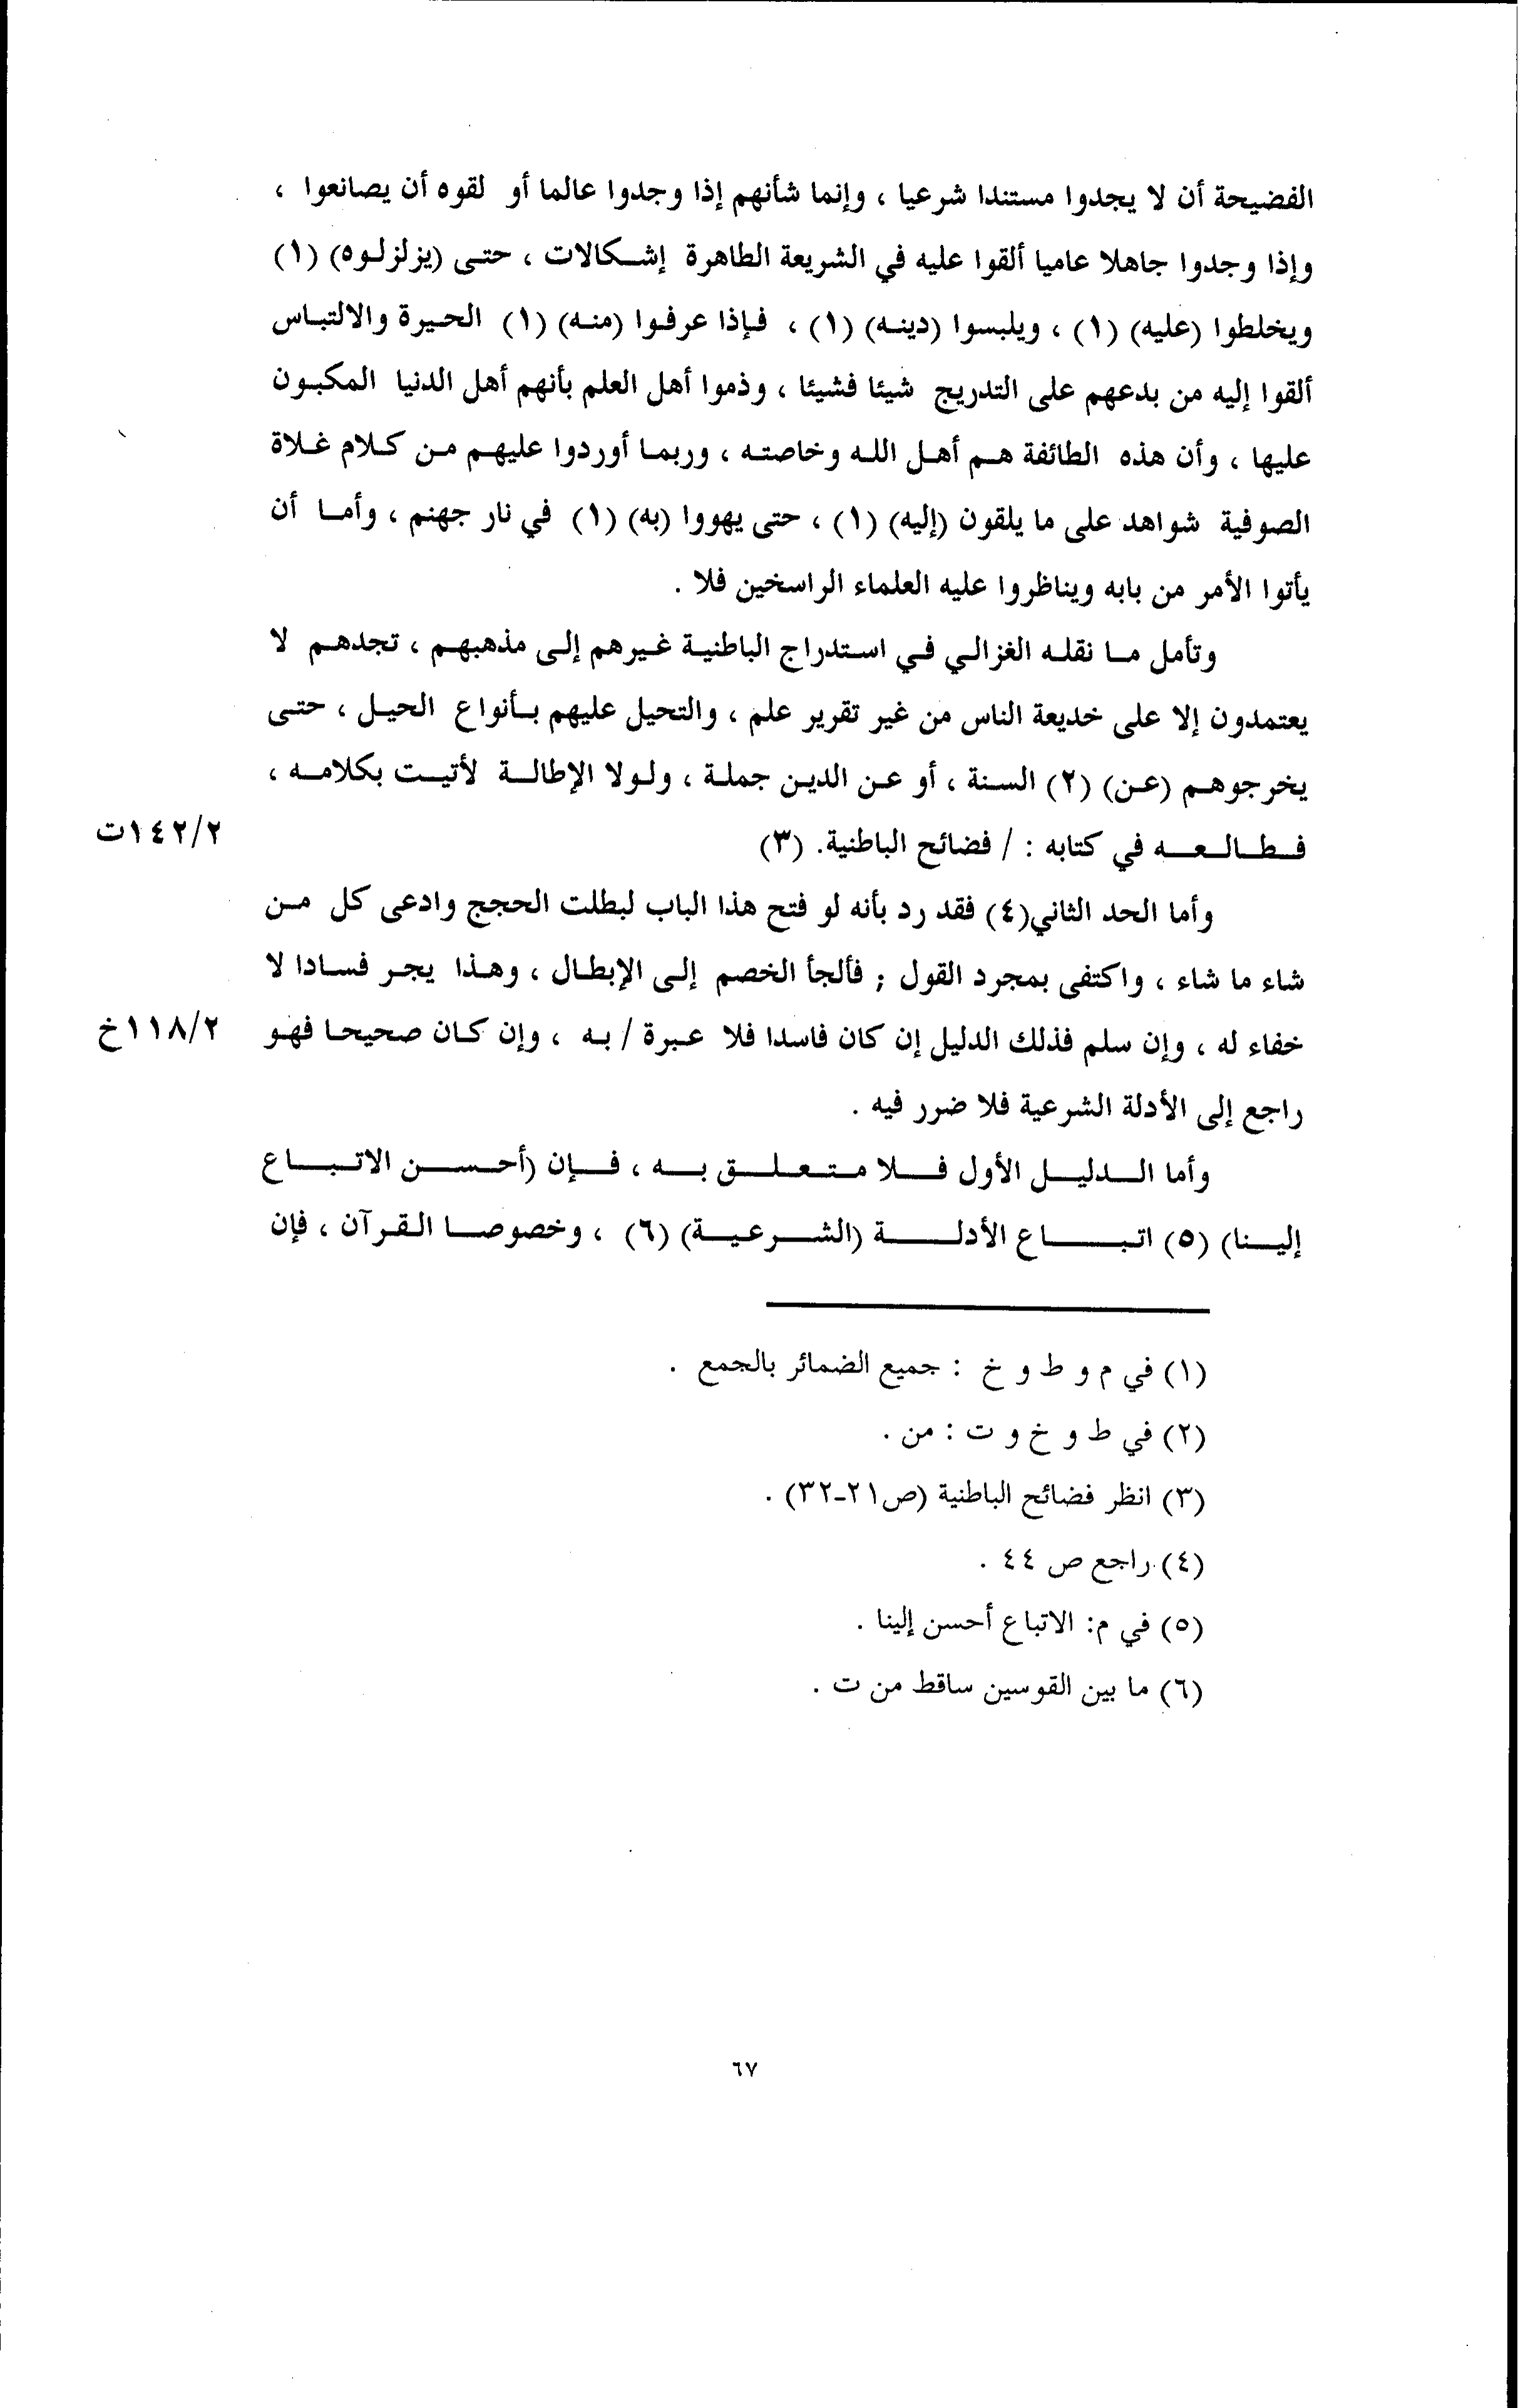 الفضيحة أن لا يجدوا مستندا شرعيا ، وإنما شأنهم إذا وجدوا عالما أو لقوه أن يصانعوا ،
وإذا وجدوا جاهلا عاميا ألقوا عليه في الشريعة الطاهرة إشكالات ، حتى (يزلزلوه) (١)
ويخلطوا (عليه) (١) ، ويلبسوا (دينه) (١) ، فإذا عرفوا (منه) (١) الحيرة والالتباس
ألقوا إليه من بدعهم على التدريج شيئا فشيئا ، وذموا أهل العلم بأنهم أهل الدنيا المكبون
عليها ، وأن هذه الطائفة هم أهل الله وخاصته ، وربما أوردوا عليهم من كلام غلاة
الصوفية شواهد على ما يلقون (إليه) (١) ، حتى يهووا (به) (١) في نار جهنم ، وأما أن
يأتوا الأمر من بابه ويناظروا عليه العلماء الراسخين فلا .
وتأمل ما نقله الغزالي في استدراج الباطنية غيرهم إلى مذهبهم ، تجدهم لا
يعتمدون إلا على خديعة الناس من غير تقرير علم ، والتحيل عليهم بأنواع الحيل ، حتى
يخرجوهم (عن) (٢) السنة ، أو عن الدين جملة ، ولولا الإطالة لأتيت بكلامه ،
فطالعه في كتابه : / فضائح الباطنية. (٣) ١٤٢/٢ت
وأما الحد الثاني(٤) فقد رد بأنه لو فتح هذا الباب لبطلت الحجج وادعى كل من
شاء ما شاء ، واكتفى بمجرد القول ; فألجأ الخصم إلى الإبطال ، وهذا يجر فسادا لا
خفاء له ، وإن سلم فذلك الدليل إن كان فاسدا فلا عبرة / به ، وإن كان صحيحا فهو ١١٨/٢خ
راجع إلى الأدلة الشرعية فلا ضرر فيه .
وأما الدليل الأول فلا متعلق به ، فإن (أحسن الاتباع
إلينا) (٥) اتباع الأدلة (الشرعية) (٦) ، وخصوصا القرآن ، فإن
(١) في م و ط و خ : جميع الضمائر بالجمع .
(٢) في ط و خ و ت : من .
(٣) انظر فضائح الباطنية (ص٢١-٣٢) .
(٤) راجع ص ٤٤ .
(٥) في م: الاتباع أحسن إلينا .
(٦) ما بين القوسين ساقط من ت .
٦٧